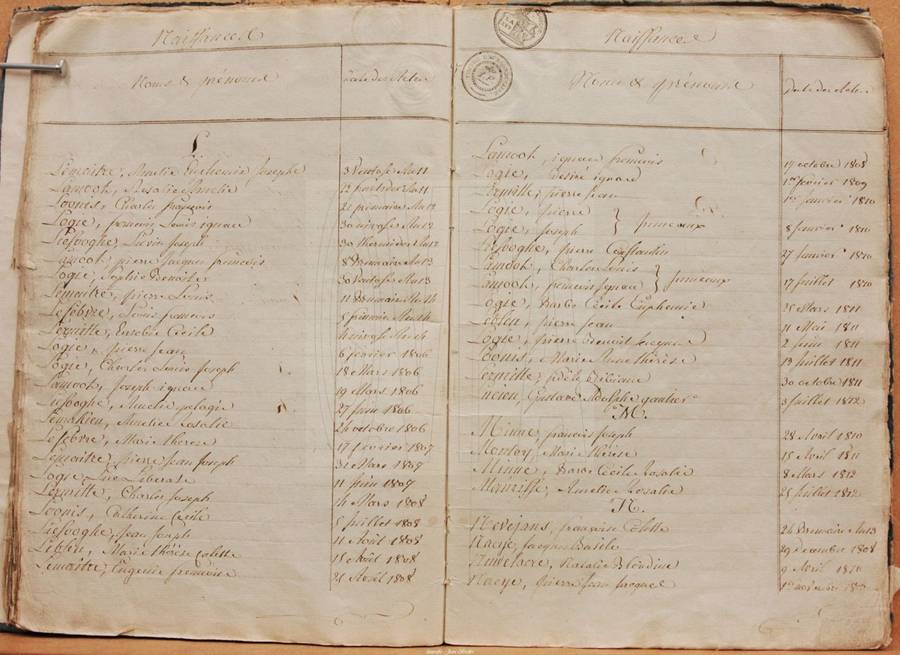 Naissances
Noms & prénoms Date des Actes
L
Lemaitre, Amelie Euchemie Josephe 3 Ventose An 11
Lamook, Rosalie Amelie 12
Loonis, Charles françois 21 primaire An 12
Logie, francois Louis ignace 30 nivose An 12
Liefooghe, Livin Joseph 30 thermidor An 12
Lamook, pierre Jacques francois 8 Brumaire An 13
Logie, Sophie Benoite 30 Ventose An 13
Lemaitre, pierre Louis 11 Brumaire An 14
Lefebvre, Louis francois 5 frimaire An 14
Lermitte, Eusebe Cécile 4 nivose An 14
Logie, pierre Jean 6 février 1806
Logie, Charles Louis Joseph 18 Mars 1806
Lamook, Joseph ignace 19 Mars 1806
Liefooghe, Amelie pelagie 27 Juin 1806
Lemahieu, Amelie Rosalie 26 octobre 1806
Lefebvre, Marie thérèse 17 février 1807
Lemaitre, pierre Jean Joseph 31 Mars 1807
Logie Liberate 11 Juin 1807
Lermitte, Charles Joseph 4 Mars 1808
Loonis, Catherine Cécile 5 Juillet 1808
Liefooghe, Jean Joseph 11 Août 1808
Lebleu, Marie thérèse Colette 15 Août 1808
Lemaitre, Eugenie francoise 21 1808
Naissances
Noms & prénoms Date des Actes
Lamook, ignace francois 17 octobre 1808
Logie, Desiré ignace 1er février 1809
Lermitte, pierre Jean 1er janvier 1810
Logie, pierre
Logie, Joseph } jumeaux 8 Janvier 1810
Liefooghe, pierre Constantin 27 Janvier 1810
Lamook, Charles Louis
Lamook, francois ignace } jumeaux 17 Juillet 1810
Logie, Barbe Cécile Euphemie 25 Mars 1811
Lebleu, pierre Jean 11 Mai 1811
Logie, pierre Benoit 2 Juin 1811
Loonis, Marie Anne thérèse 13 Juillet 1811
Lermitte, fidèle 30 octobre 1811
Gustave Adolphe 3 Juillet 1812
M.
Minne, francois Joseph 28 Avril 1810
Monloy, Marie thérèse 15 Avril 1811
Minne, Barbe Cécile Rosalie 8 Mars 1812
Amelie Rosalie 25 Juillet 1812
N.
Nevejans, francoise Colette 24 Brumaire An 13
Naeye, Jacques Basile 29 décembre 1808
Natalie Blondine 9 Avril 1810
Naeye, pierre Jean Jacques 1er novembre